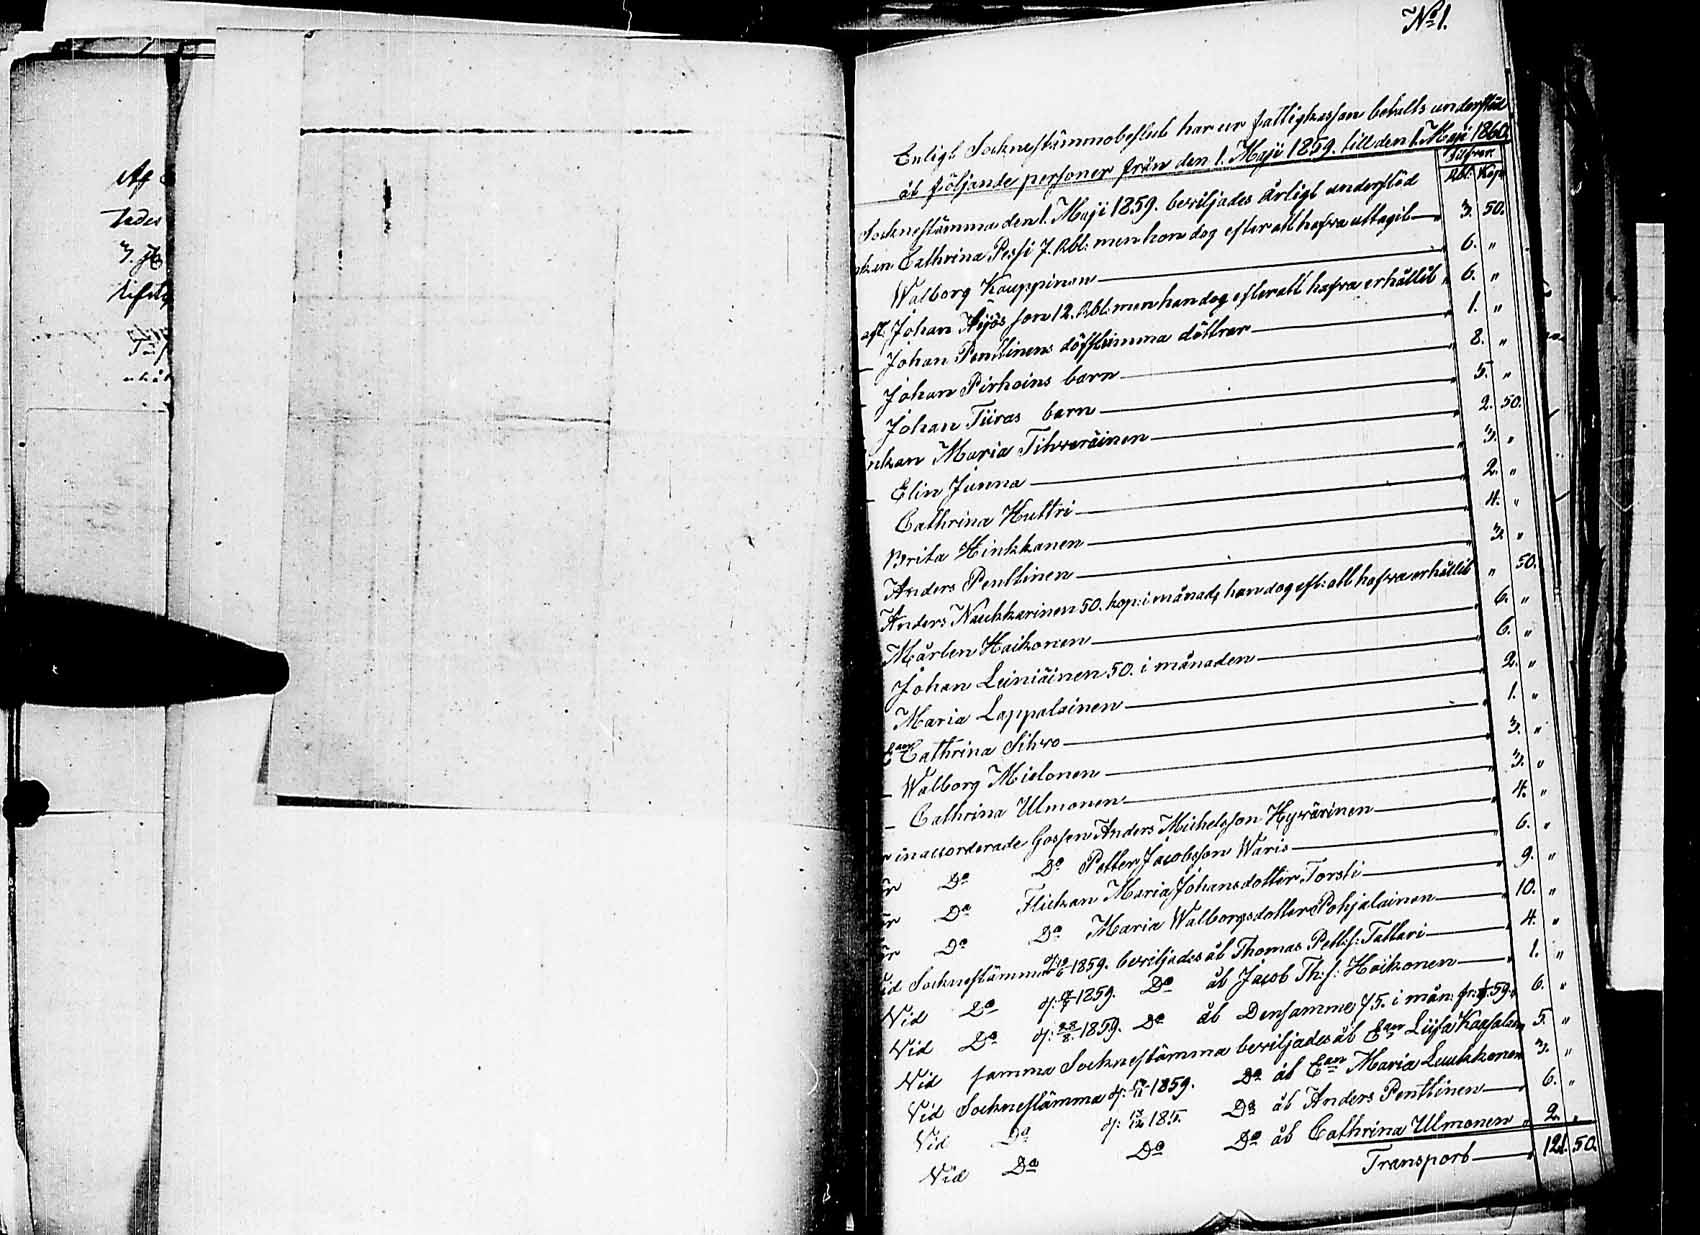 No 1.
Enligt Socknestämmobeslut har ur fattigkassan betalts understöd
åt följande personer från den 1. Maji 1859. till den 1. Maji 1860.
Silfver
Rbl: Kop
Socknestämma den 1. Maji 1859. beviljades årligt understöd
nkan Cathrina Pessi 7. Rbl: men hon dog efter att hafva uttagit — 3. 50.
Walborg Kauppinen — 6. "
Johan Äijös son 12. Rbl: men han dog efter att hafva erhållit 6. "
Johan Penttinens döfstumma döttrar — 1. "
Johan Pirhoins barn — 8. "
Johan Tiiras barn — 5. "
nkan Maria Tihveräinen — 2. 50.
Elin Junna — 3. "
Cathrina Huttri — 2. "
Brita Hinkkanen — 4. "
Anders Penttinen — 3. "
Anders Naukkarinen 50. kop: i månad, han dog eft: att hafva erhållit " 50.
Mårten Haikonen — 6. "
Johan Leiniäinen 50. i månaden — 6. "
Maria Lappalainen — 2. "
Ean Cathrina Sihvo — 1. "
Walborg Mielonen — 3. "
Cathrina Ulmonen — 3. "
r inaccorderade Gossen Anders Michelsson Hyvärinen — 4. "
ör Do Do Petter Jacobsson Waris — 6. "
ör Do Flickan Maria Johansdotter Torsti — 9. "
ör Do Do Maria Walborgsdotter Pohjalainen — 10. "
id Socknestämma 1859. beviljades åt Thomas Pett:s: Tattari — 4. "
Vid Do 1859. Do åt Jacob Th:s: Haikonen — 1. "
Vid Do d: 28/8. 1859. Do åt Densamma 75. i mån: 59. 6. "
Vid samma Socknestämma beviljades åt Ean Liisa 5. "
Vid Socknestämma 1859. Do åt Ean Maria Luukkonen 3. "
Vid Do Do åt Anders Penttinen — 6. "
Vid Do Do Do åt Cathrina Ulmonen 2. "
Transport — 121. 50.